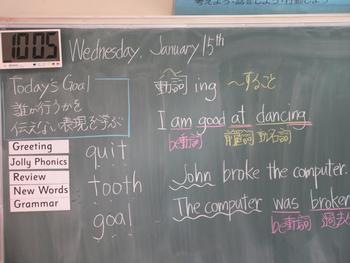 10:05
Wednesday, January 15th
Today's Goal
誰が行うかを
伝えない表現を学ぶ
Greeting
Jolly Phonics
Review
New Words
Grammar
quit
tooth
goal
動詞ing ～すること
I am good at dancing
be動詞 前置詞 動名詞
John broke the computer.
The computer was broken
be動詞 過去